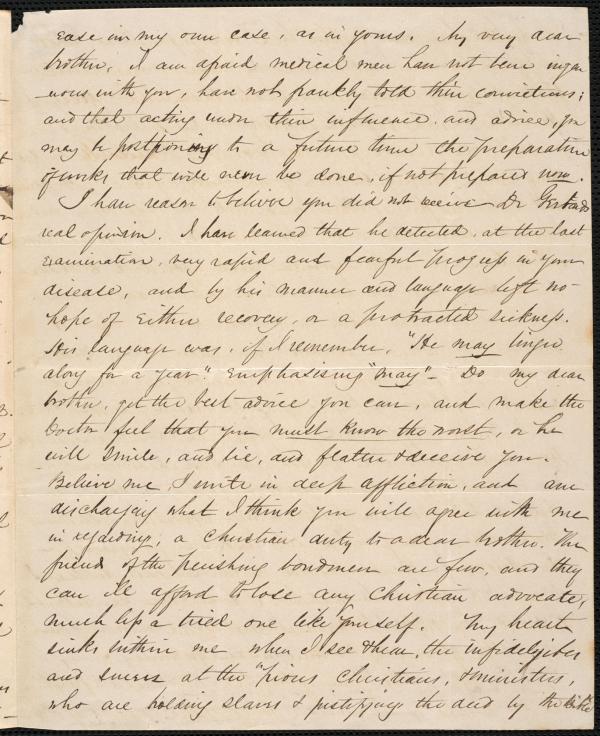 ease in my own case, as in yours. My very dear
brother, I am afraid medical men have not been inge
nuous with you, have not frankly told their convictions;
and that acting under their influence, and advice, you
may be postponing to a future time the preparation
of works that will never be done, if not prepared now.
I have reason to believe you did not receive Dr
real opinion. I have learned that he detected, at the last
examination, very rapid and fearful progress in your
disease, and by his manner and language left no
hope of either recovery, or a protracted sickness.
His language was, if I remember, "He may linger
along for a year." Emphasising "may" - Do my dear
brother, get the best advice you can, and make the
Doctor feel that you must know the worst, or he
will smile, and lie, and flatter & deceive you.
Believe me, I write in deep affliction, and am
discharging what I think you will agree with me
in regarding, a Christian duty to a dear brother. The
friends of the perishing bondmen are few, and they
can ill afford to lose any Christian advocate,
much less a tried one like yourself. My heart
sinks within me when I see & hear, the infidel jibes
and sneers at the "pious Christians, & ministers,
who are holding slaves & justifying the deed by the Bible